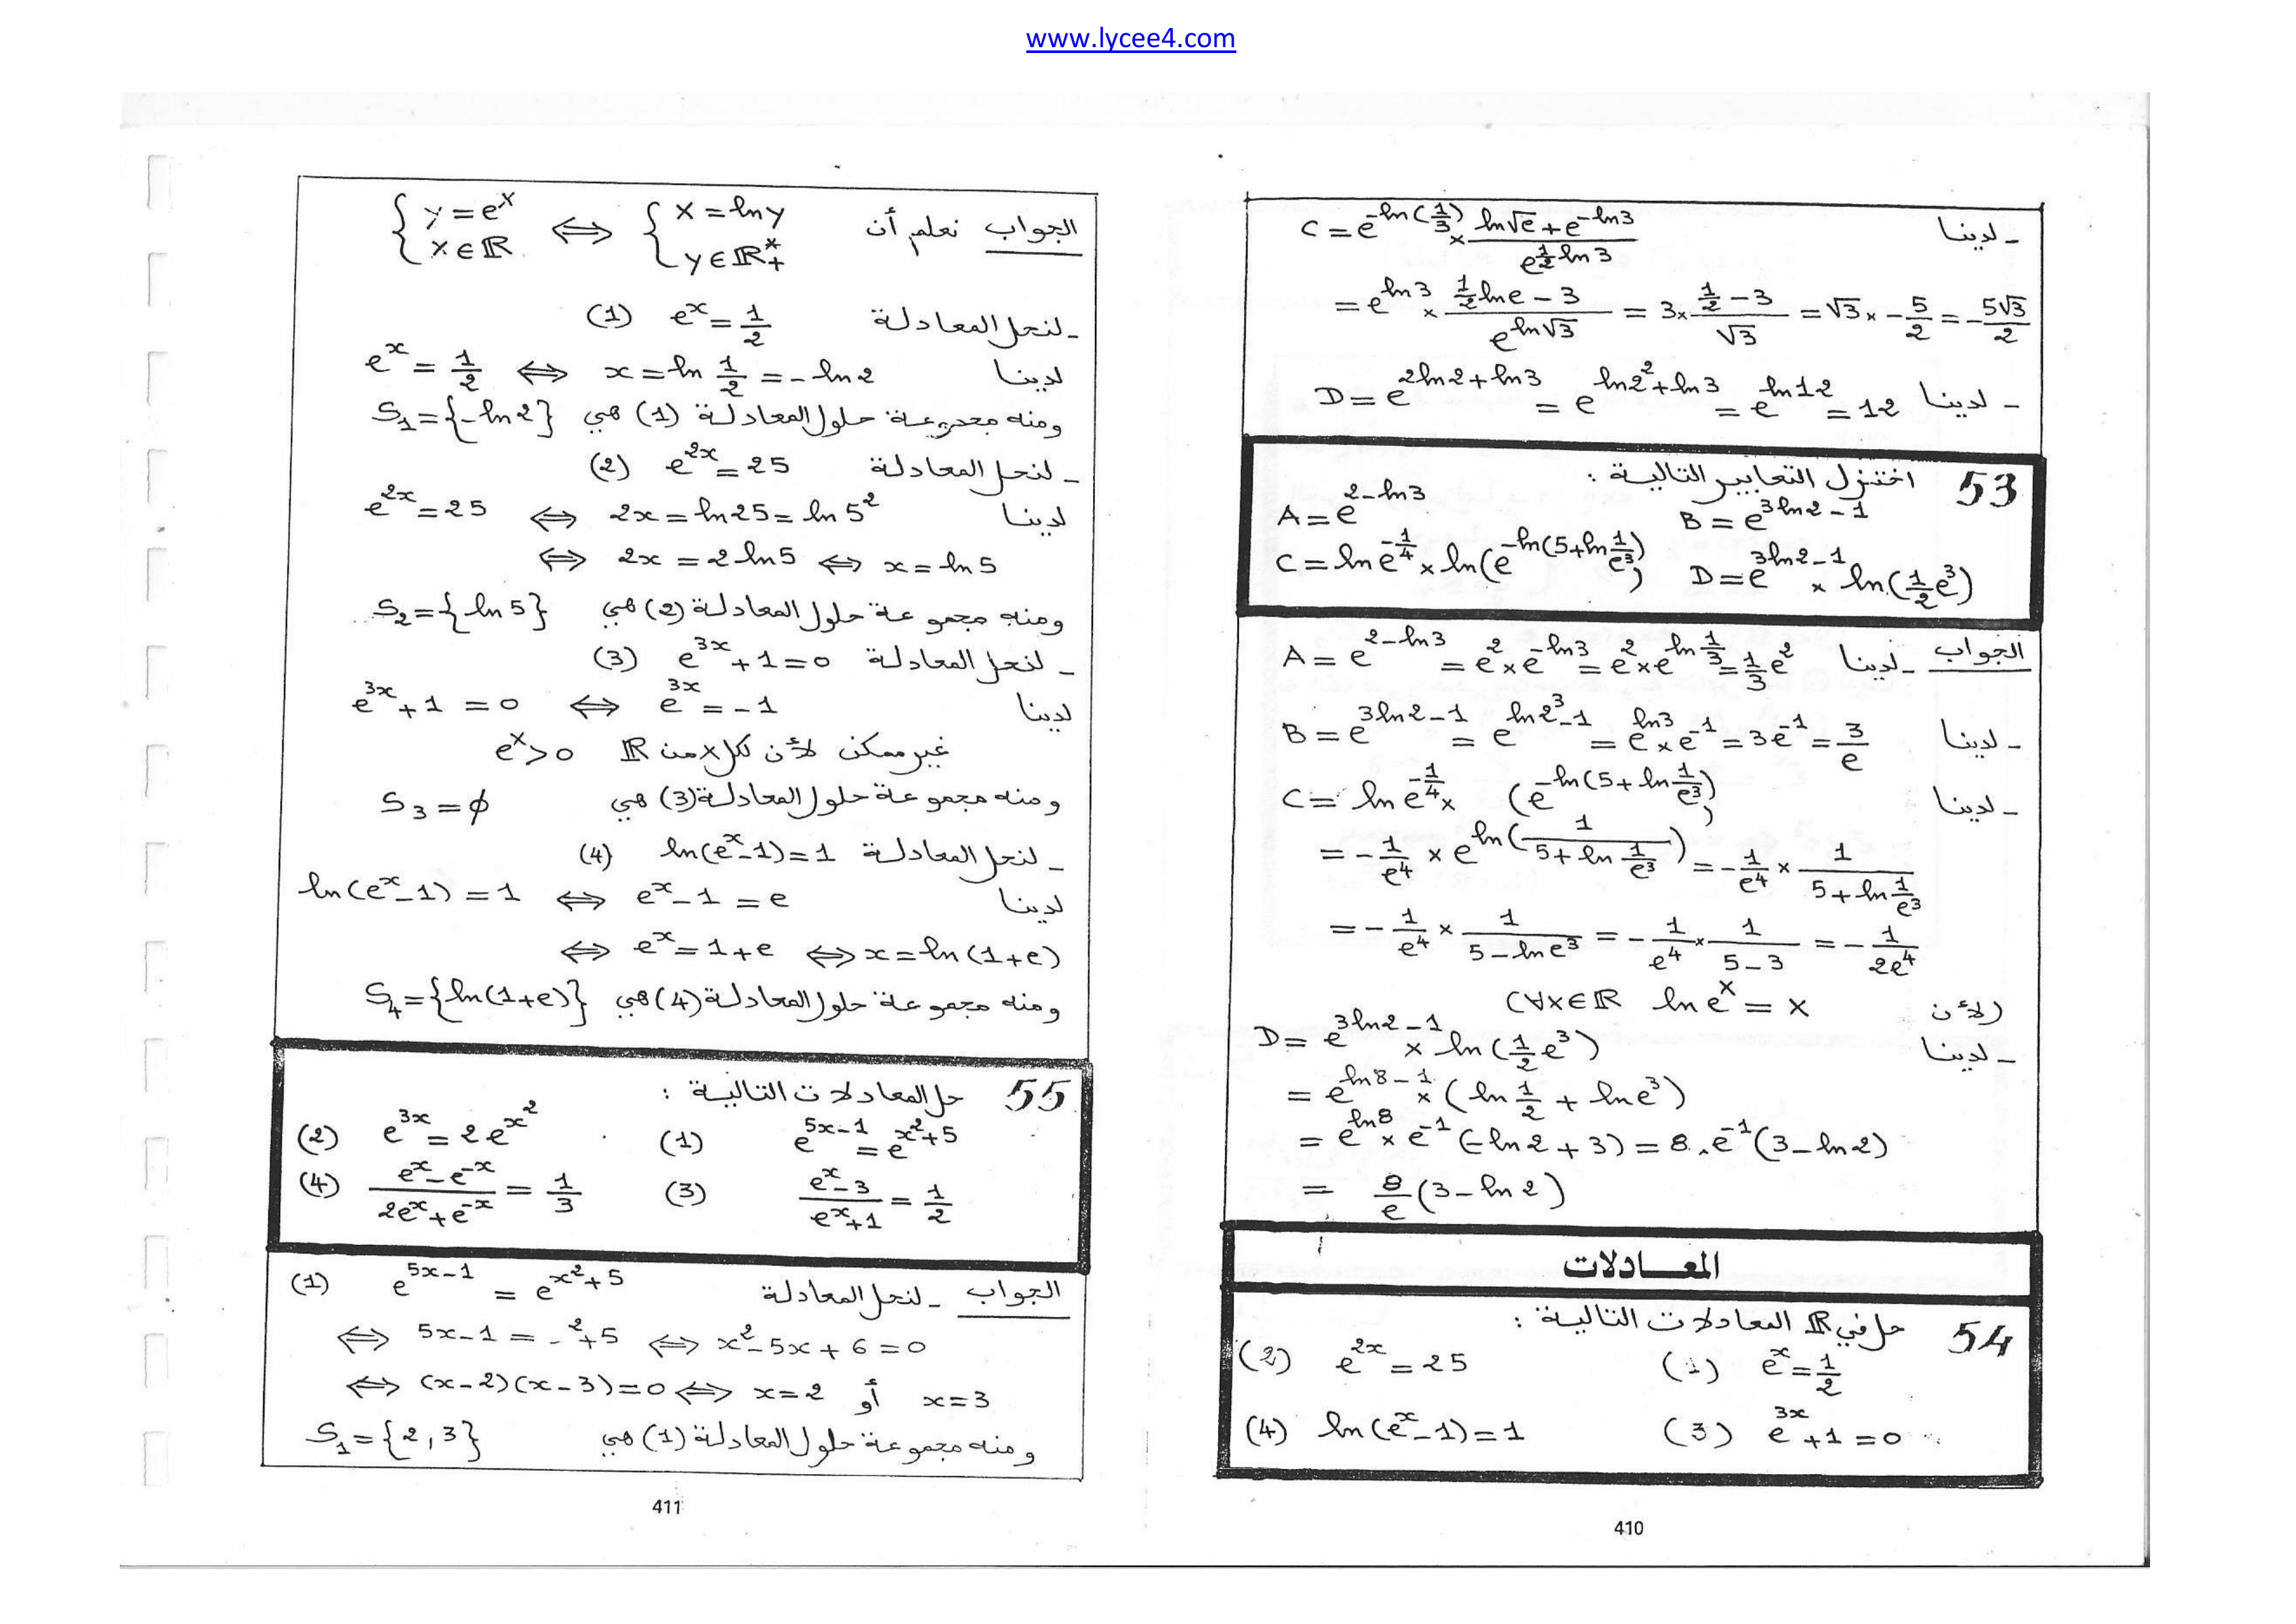 www.lycee4.com
- لدينا C = e^{-ln(1/3)} × (ln√e + e^{-ln3}) / e^{1/2 ln3}
= e^{ln3} × (1/2 lne - 3) / e^{ln√3} = 3 × (1/2 - 3) / √3 = √3 × -5/2 = -5√3/2
- لدينا D = e^{2ln2+ln3} = e^{ln2²+ln3} = e^{ln12} = 12
53 اختزل التعابير التالية :
A = e^{2-ln3} B = e^{3ln2-1}
C = ln e^{-1/4} × ln(e^{-ln(5+ln 1/e³)}) D = e^{3ln2-1} × ln(1/2 e³)
الجواب - لدينا A = e^{2-ln3} = e² × e^{-ln3} = e² × e^{ln 1/3} = 1/3 e²
- لدينا B = e^{3ln2-1} = e^{ln2³-1} = e^{ln3} × e^{-1} = 3e^{-1} = 3/e
- لدينا C = ln e^{-1/4} × (e^{-ln(5+ln 1/e³)})
= -1/e⁴ × e^{ln(1/(5+ln 1/e³))} = -1/e⁴ × 1/(5+ln 1/e³)
= -1/e⁴ × 1/(5-lne³) = -1/e⁴ × 1/(5-3) = -1/2e⁴
(لأن (∀x∈ℝ ln e^x = x
- لدينا D = e^{3ln2-1} × ln(1/2 e³)
= e^{ln8-1} × (ln 1/2 + lne³)
= e^{ln8} × e^{-1} (-ln2 + 3) = 8.e^{-1}(3-ln2)
= 8/e (3-ln2)
المعـــادلات
54 حل في ℝ المعادلات التالية :
(1) e^x = 1/2 (2) e^{2x} = 25
(3) e^{3x} + 1 = 0 (4) ln(e^x - 1) = 1
410
الجواب نعلم أن { y = e^x ⟺ { x = lny
x∈ℝ y∈ℝ*₊
- لنحل المعادلة (1) e^x = 1/2
لدينا e^x = 1/2 ⟺ x = ln 1/2 = -ln2
ومنه مجموعة حلول المعادلة (1) هي S₁ = {-ln2}
- لنحل المعادلة (2) e^{2x} = 25
لدينا e^{2x} = 25 ⟺ 2x = ln25 = ln5²
⟺ 2x = 2ln5 ⟺ x = ln5
ومنه مجموعة حلول المعادلة (2) هي S₂ = {ln5}
- لنحل المعادلة (3) e^{3x} + 1 = 0
لدينا e^{3x} + 1 = 0 ⟺ e^{3x} = -1
غير ممكن لأن لكل x من ℝ e^x > 0
ومنه مجموعة حلول المعادلة (3) هي S₃ = ∅
- لنحل المعادلة (4) ln(e^x - 1) = 1
لدينا ln(e^x - 1) = 1 ⟺ e^x - 1 = e
⟺ e^x = 1+e ⟺ x = ln(1+e)
ومنه مجموعة حلول المعادلة (4) هي S₄ = {ln(1+e)}
55 حل المعادلات التالية :
(1) e^{5x-1} = e^{x²+5} (2) e^{3x} = 2e^{x²}
(3) (e^x - 3)/(e^x + 1) = 1/2 (4) (e^x - e^{-x})/(2e^x + e^{-x}) = 1/3
الجواب - لنحل المعادلة (1) e^{5x-1} = e^{x²+5}
⟺ 5x-1 = ²+5 ⟺ x²-5x+6 = 0
⟺ (x-2)(x-3) = 0 ⟺ x = 2 أو x = 3
ومنه مجموعة حلول المعادلة (1) هي S₁ = {2, 3}
411